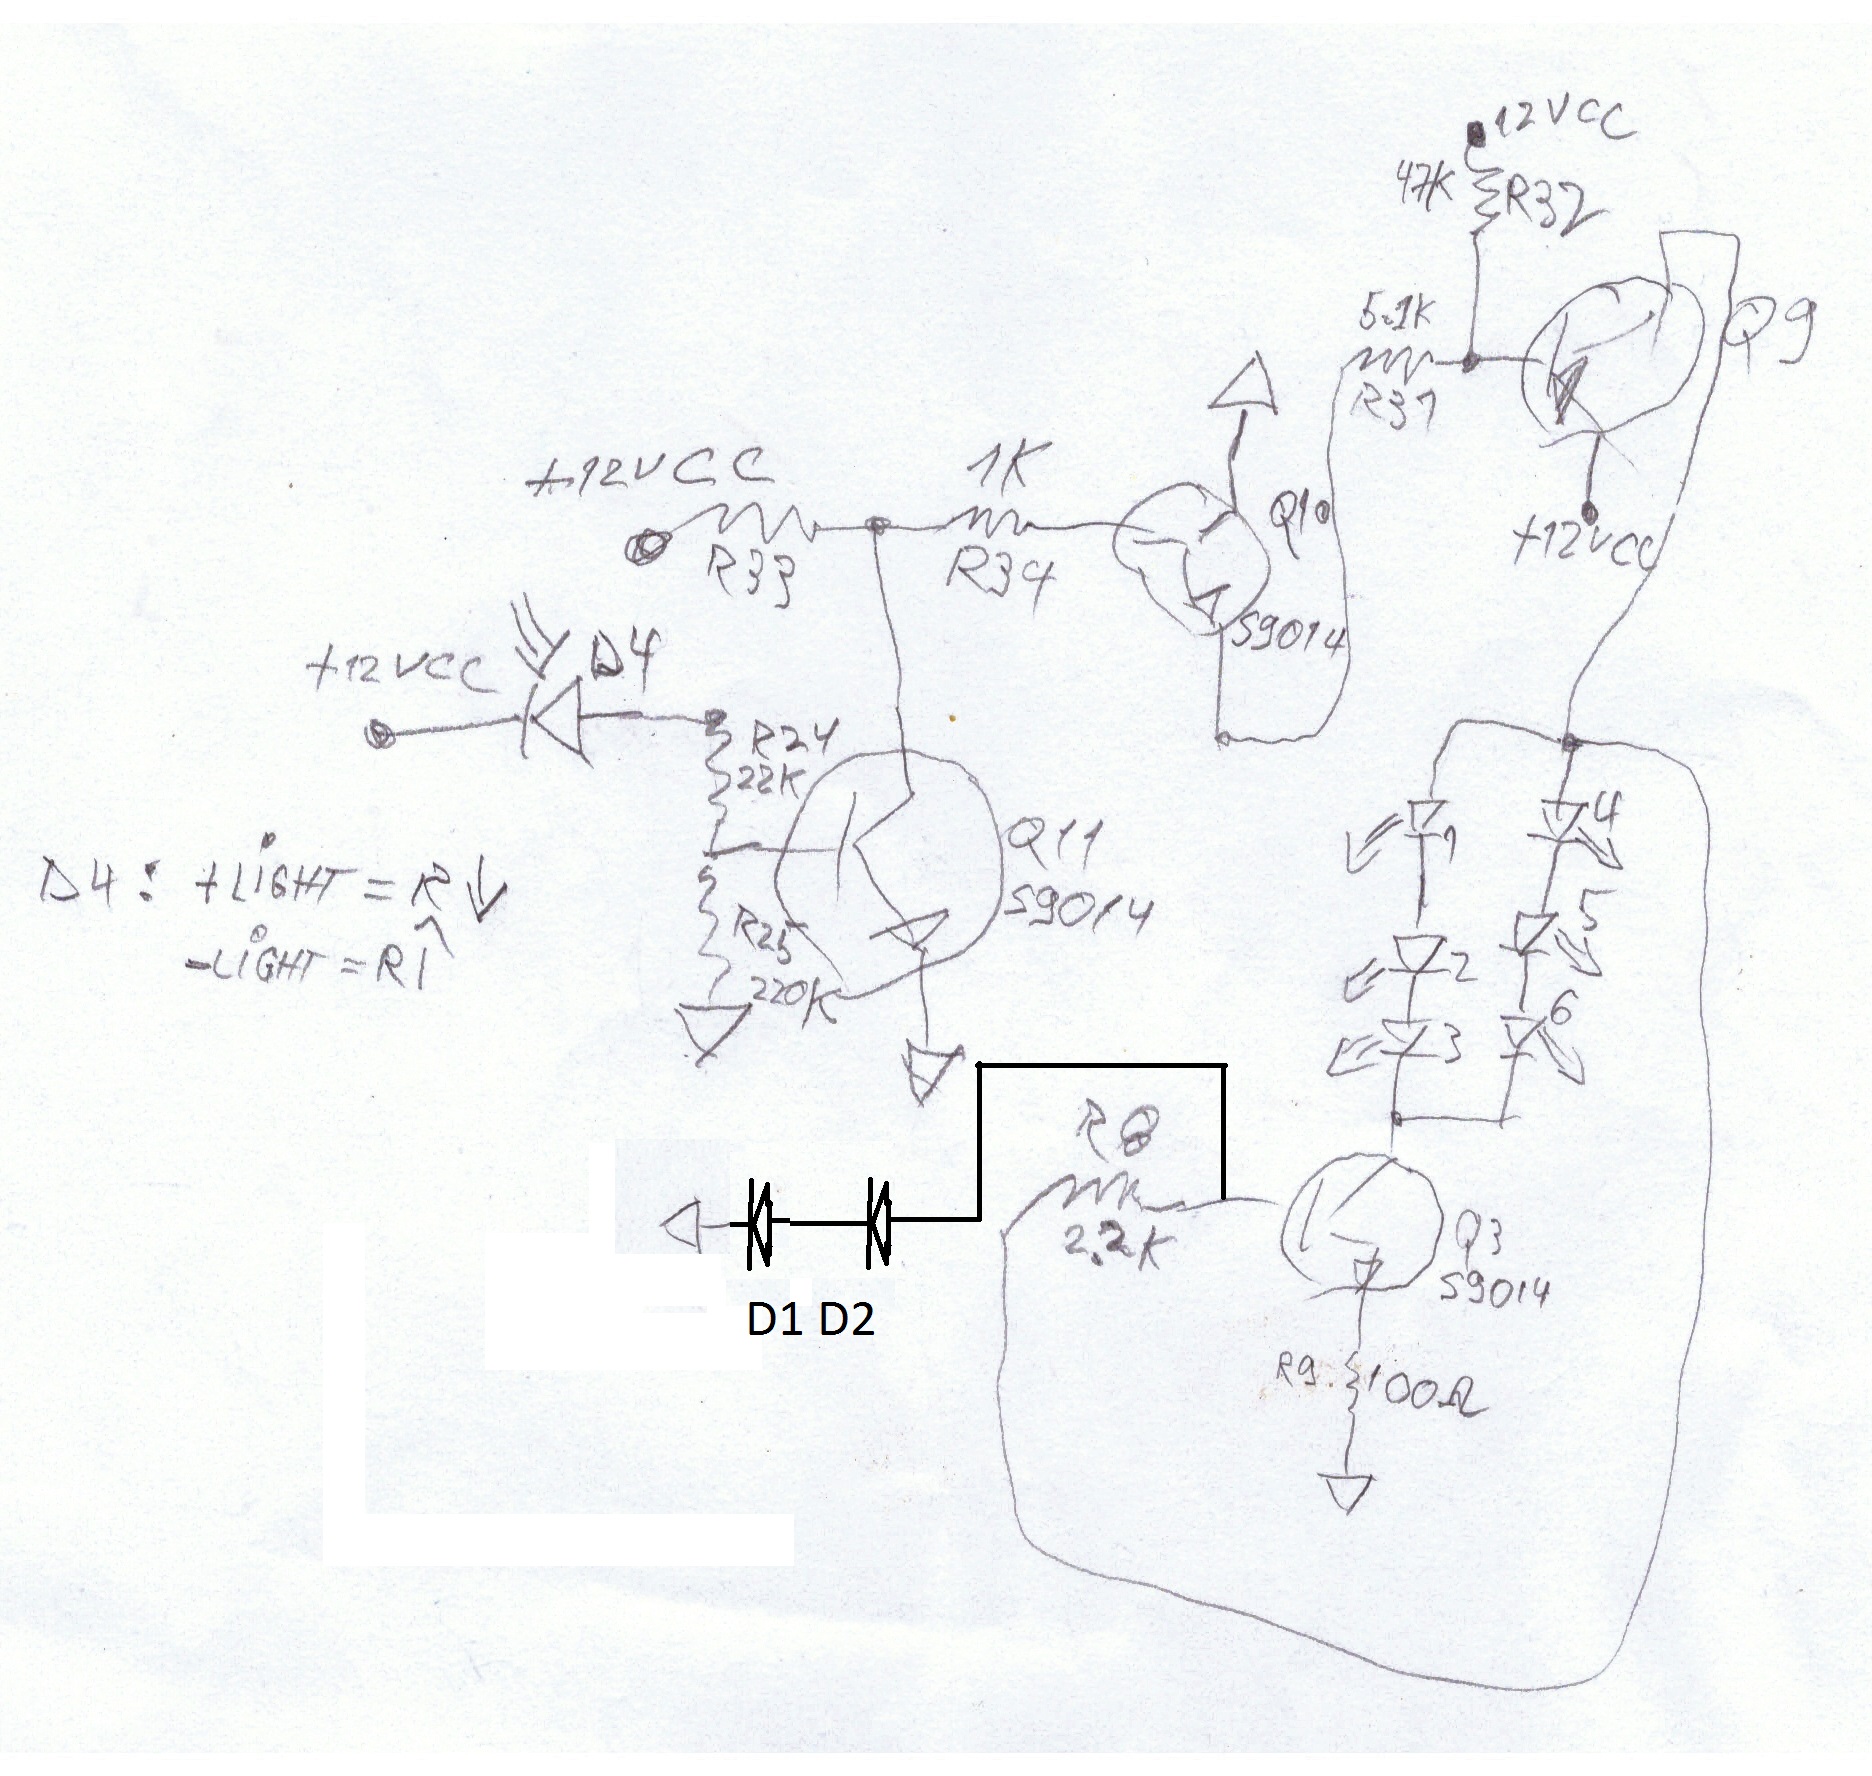 12VCC
47K
R32
5.1K
R31
Q9
+12VCC
+12VCC
1K
R33
R34
Q10
S9014
+12VCC
D4
R24
22K
Q11
S9014
R25
220K
D4: +LiGHT = R↓
-LiGHT = R↑
1
4
2
5
3
6
R8
2.2K
Q3
S9014
D1 D2
R9
100Ω